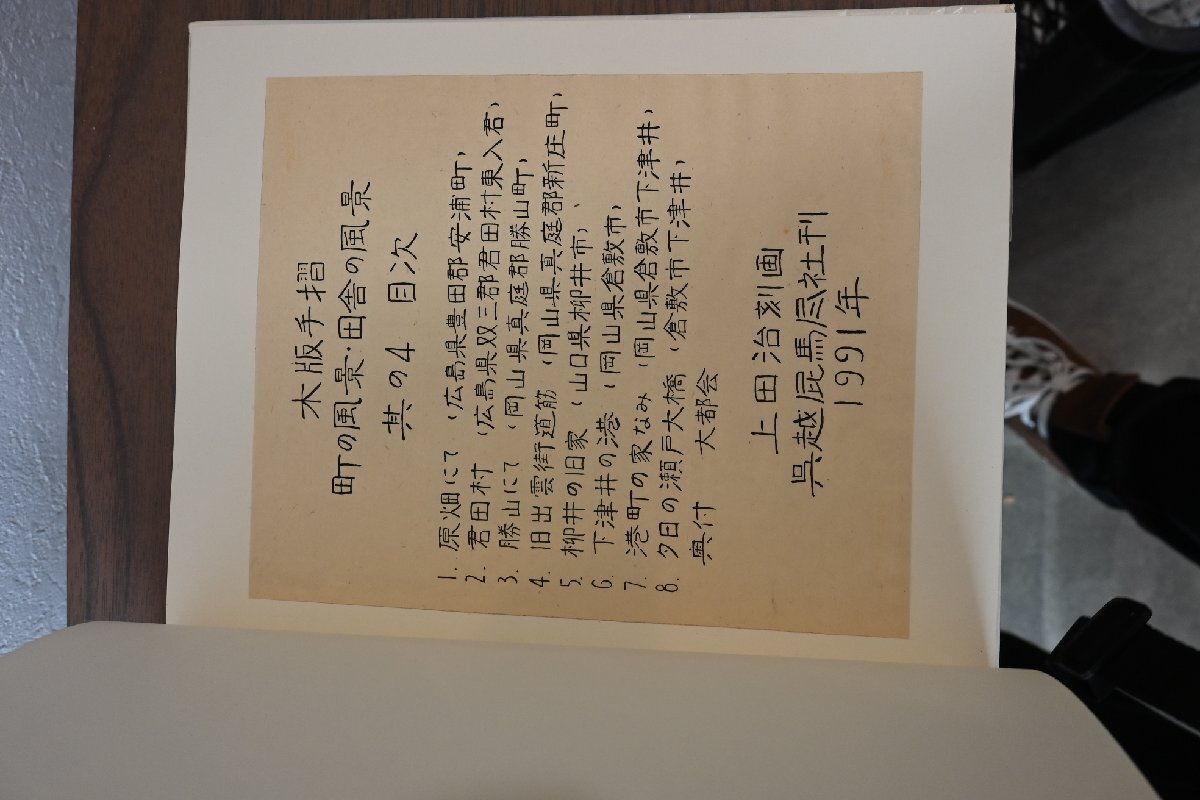 木版手摺
町の風景・田舎の風景
其の4 目次
1. 原畑にて (広島県豊田郡安浦町)
2. 君田村 (広島県双三郡君田村東入君)
3. 勝山にて (岡山県真庭郡勝山町)
4. 旧出雲街道筋 (岡山県真庭郡新庄町)
5. 柳井の旧家 (山口県柳井市)
6. 下津井の港 (岡山県倉敷市)
7. 港町の家なみ (岡山県倉敷市下津井)
8. 夕日の瀬戸大橋 (倉敷市下津井)
奥付 大都会
上田治刻画
呉越屁馬尽社刊
1991年